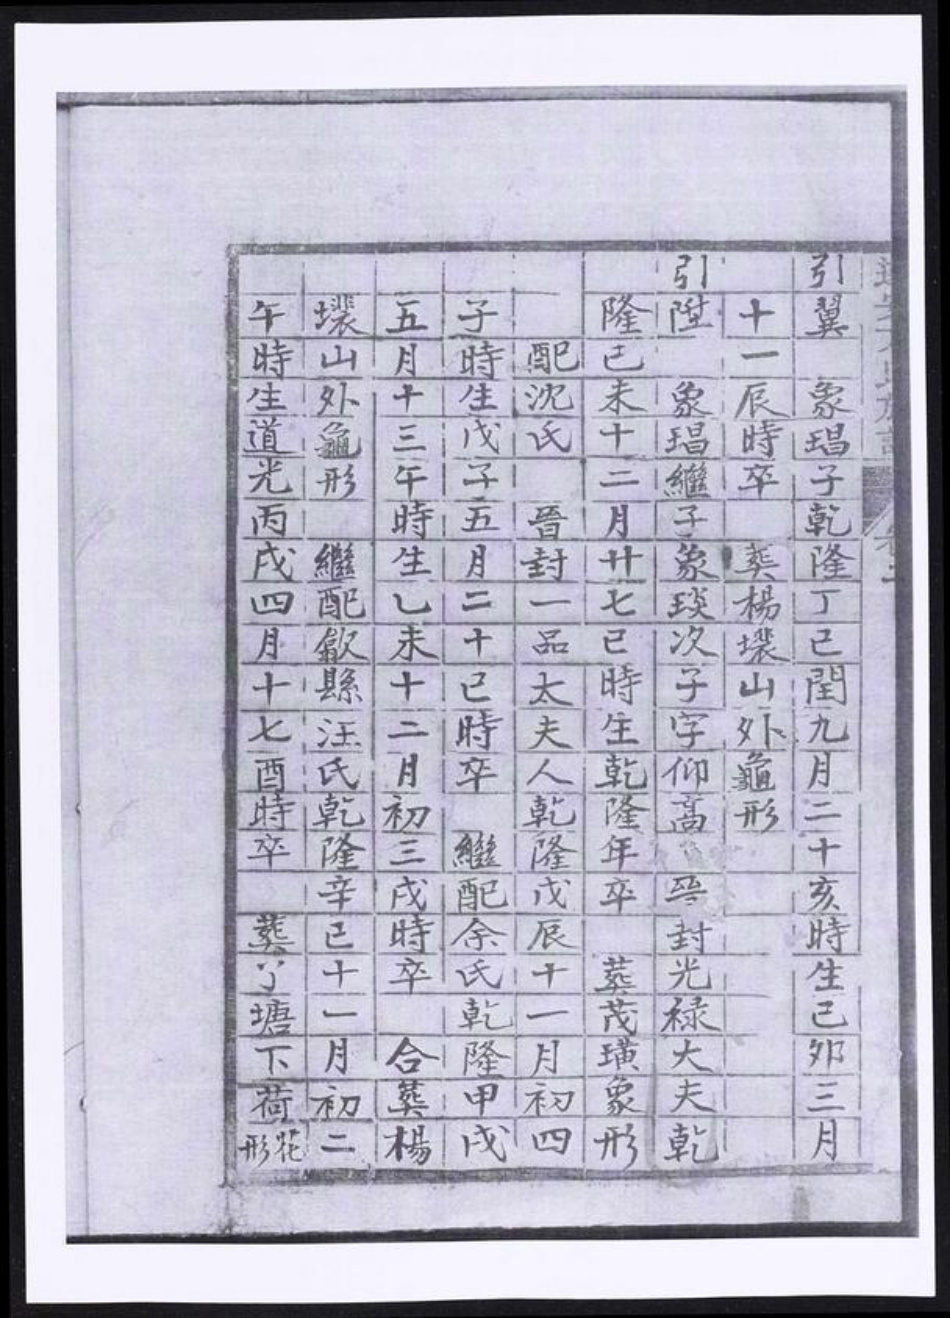 引翼 象琩子乾隆丁巳閏九月二十亥時生己夘三月
十一辰時卒 葬楊壋山外龜形
引陞 象琩繼子象琰次子字仰高 晉封光禄大夫乾
隆己未十二月廿七巳時生乾隆年卒 葬茂璜象形
配沈氏 晉封一品太夫人乾隆戊辰十一月初四
子時生戊子五月二十巳時卒 繼配余氏乾隆甲戌
五月十三午時生乙未十二月初三戌時卒 合葬楊
壋山外龜形 繼配歙縣汪氏乾隆辛巳十一月初二
午時生道光丙戌四月十七酉時卒 葬丫塘下荷花形